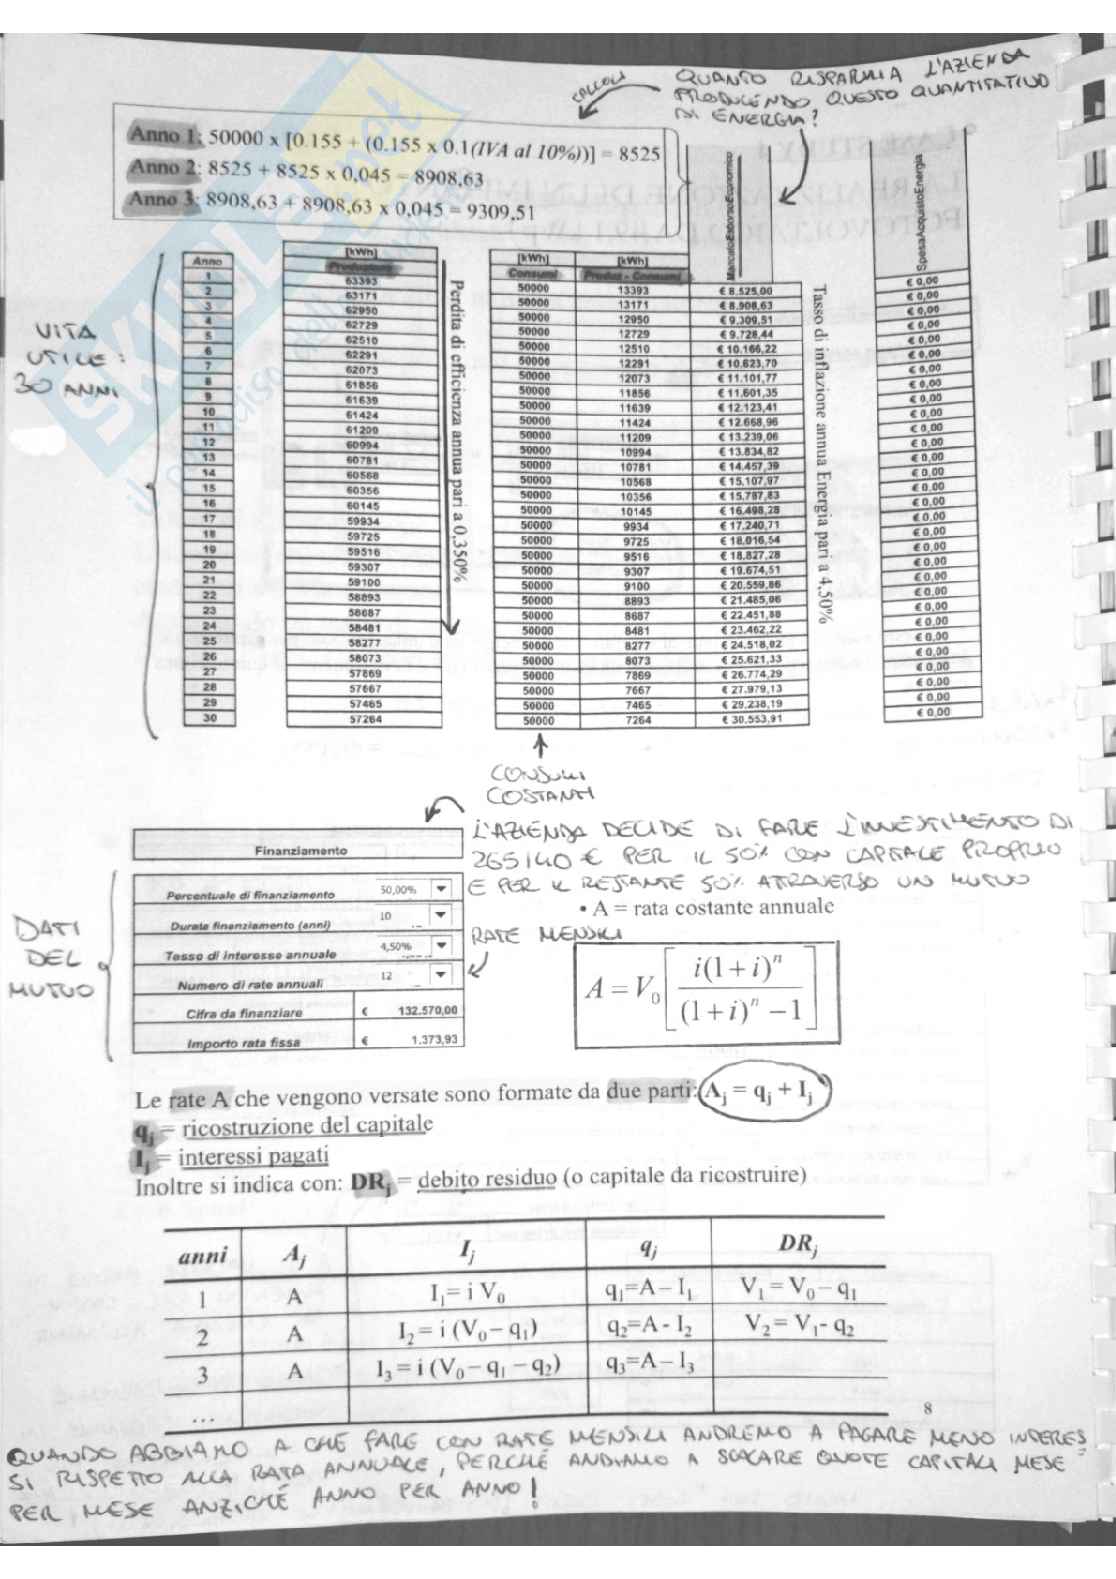 CALCOLI
QUANTO RISPARMIA L'AZIENDA
PRODUCENDO QUESTO QUANTITATIVO
DI ENERGIA?
Anno 1: 50000 x [0.155 + (0.155 x 0.1(IVA al 10%))] = 8525
Anno 2: 8525 + 8525 x 0,045 = 8908,63
Anno 3: 8908,63 + 8908,63 x 0,045 = 9309,51
MancatoEsborsoEconomico
SpesaAcquistoEnergia
VITA
UTILE:
30 ANNI
Perdita di efficienza annua pari a 0,350%
Tasso di inflazione annua Energia pari a 4,50%
[kWh] [kWh] [kWh]
Anno Produzione Consumi Produz - Consumi
1 63393 50000 13393 € 8.525,00 € 0,00
2 63171 50000 13171 € 8.908,63 € 0,00
3 62950 50000 12950 € 9.309,51 € 0,00
4 62729 50000 12729 € 9.728,44 € 0,00
5 62510 50000 12510 € 10.166,22 € 0,00
6 62291 50000 12291 € 10.623,70 € 0,00
7 62073 50000 12073 € 11.101,77 € 0,00
8 61856 50000 11856 € 11.601,35 € 0,00
9 61639 50000 11639 € 12.123,41 € 0,00
10 61424 50000 11424 € 12.668,96 € 0,00
11 61209 50000 11209 € 13.239,06 € 0,00
12 60994 50000 10994 € 13.834,82 € 0,00
13 60781 50000 10781 € 14.457,39 € 0,00
14 60568 50000 10568 € 15.107,97 € 0,00
15 60356 50000 10356 € 15.787,83 € 0,00
16 60145 50000 10145 € 16.498,28 € 0,00
17 59934 50000 9934 € 17.240,71 € 0,00
18 59725 50000 9725 € 18.016,54 € 0,00
19 59516 50000 9516 € 18.827,28 € 0,00
20 59307 50000 9307 € 19.674,51 € 0,00
21 59100 50000 9100 € 20.559,86 € 0,00
22 58893 50000 8893 € 21.485,06 € 0,00
23 58687 50000 8687 € 22.451,88 € 0,00
24 58481 50000 8481 € 23.462,22 € 0,00
25 58277 50000 8277 € 24.518,02 € 0,00
26 58073 50000 8073 € 25.621,33 € 0,00
27 57869 50000 7869 € 26.774,29 € 0,00
28 57667 50000 7667 € 27.979,13 € 0,00
29 57465 50000 7465 € 29.238,19 € 0,00
30 57264 50000 7264 € 30.553,91 € 0,00
CONSUMI
COSTANTI
L'AZIENDA DECIDE DI FARE L'INVESTIMENTO DI
265140 € PER IL 50% CON CAPITALE PROPRIO
E PER IL RESTANTE 50% ATTRAVERSO UN MUTUO
DATI
DEL
MUTUO
Finanziamento
Percentuale di finanziamento 50,00%
Durata finanziamento (anni) 10
Tasso di interesse annuale 4,50%
Numero di rate annuali 12
Cifra da finanziare € 132.570,00
Importo rata fissa € 1.373,93
RATE MENSILI
• A = rata costante annuale
A = V₀ [ i(1+i)ⁿ / (1+i)ⁿ − 1 ]
Le rate A che vengono versate sono formate da due parti: Aj = qj + Ij
qj = ricostruzione del capitale
Ij = interessi pagati
Inoltre si indica con: DRj = debito residuo (o capitale da ricostruire)
anni Aj Ij qj DRj
1 A I₁= i V₀ q₁=A – I₁ V₁ = V₀ – q₁
2 A I₂ = i (V₀ – q₁) q₂=A - I₂ V₂ = V₁- q₂
3 A I₃ = i (V₀ – q₁ – q₂) q₃=A – I₃
...
8
QUANDO ABBIAMO A CHE FARE CON RATE MENSILI ANDREMO A PAGARE MENO INTERES
SI RISPETTO ALLA RATA ANNUALE, PERCHÉ ANDIAMO A SCACARE QUOTE CAPITALI MESE
PER MESE ANZICHÉ ANNO PER ANNO!